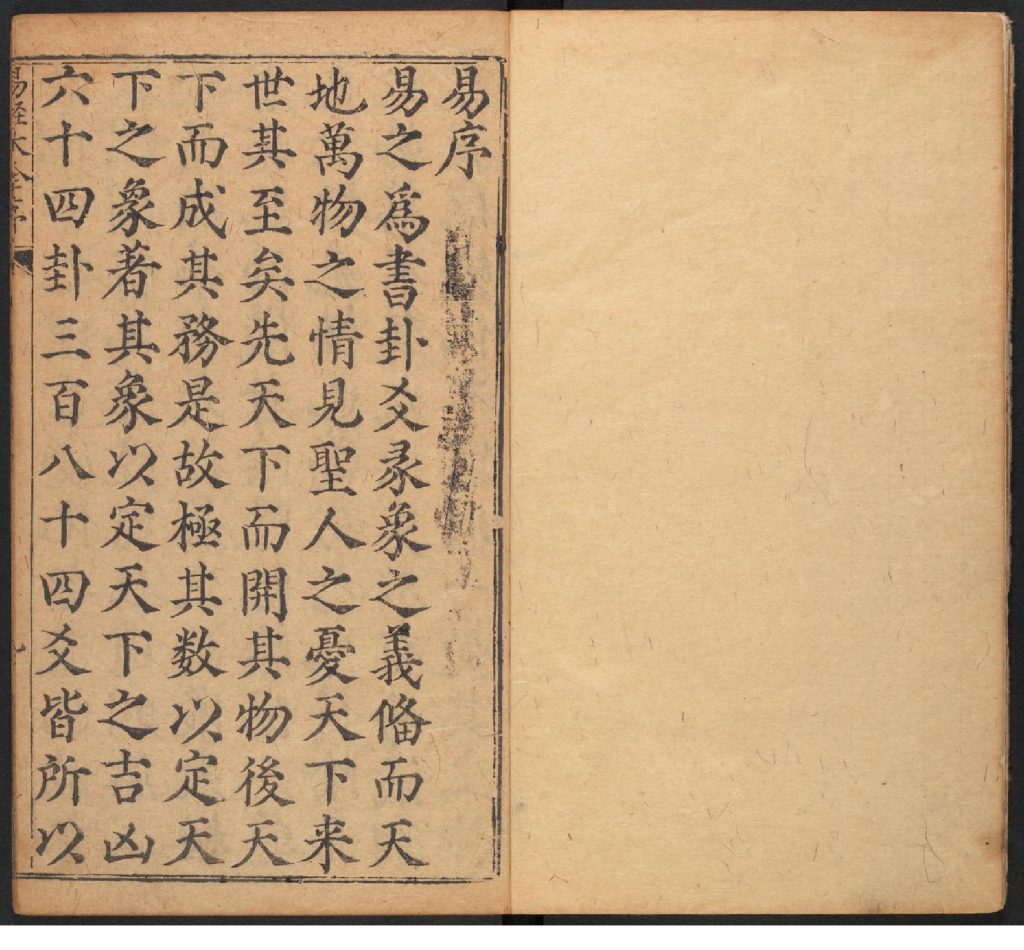 易序
易之爲書卦爻彖象之義俻而天
地萬物之情見聖人之憂天下来
世其至矣先天下而開其物後天
下而成其務是故極其数以定天
下之象著其象以定天下之吉凶
六十四卦三百八十四爻皆所以
易経大全序